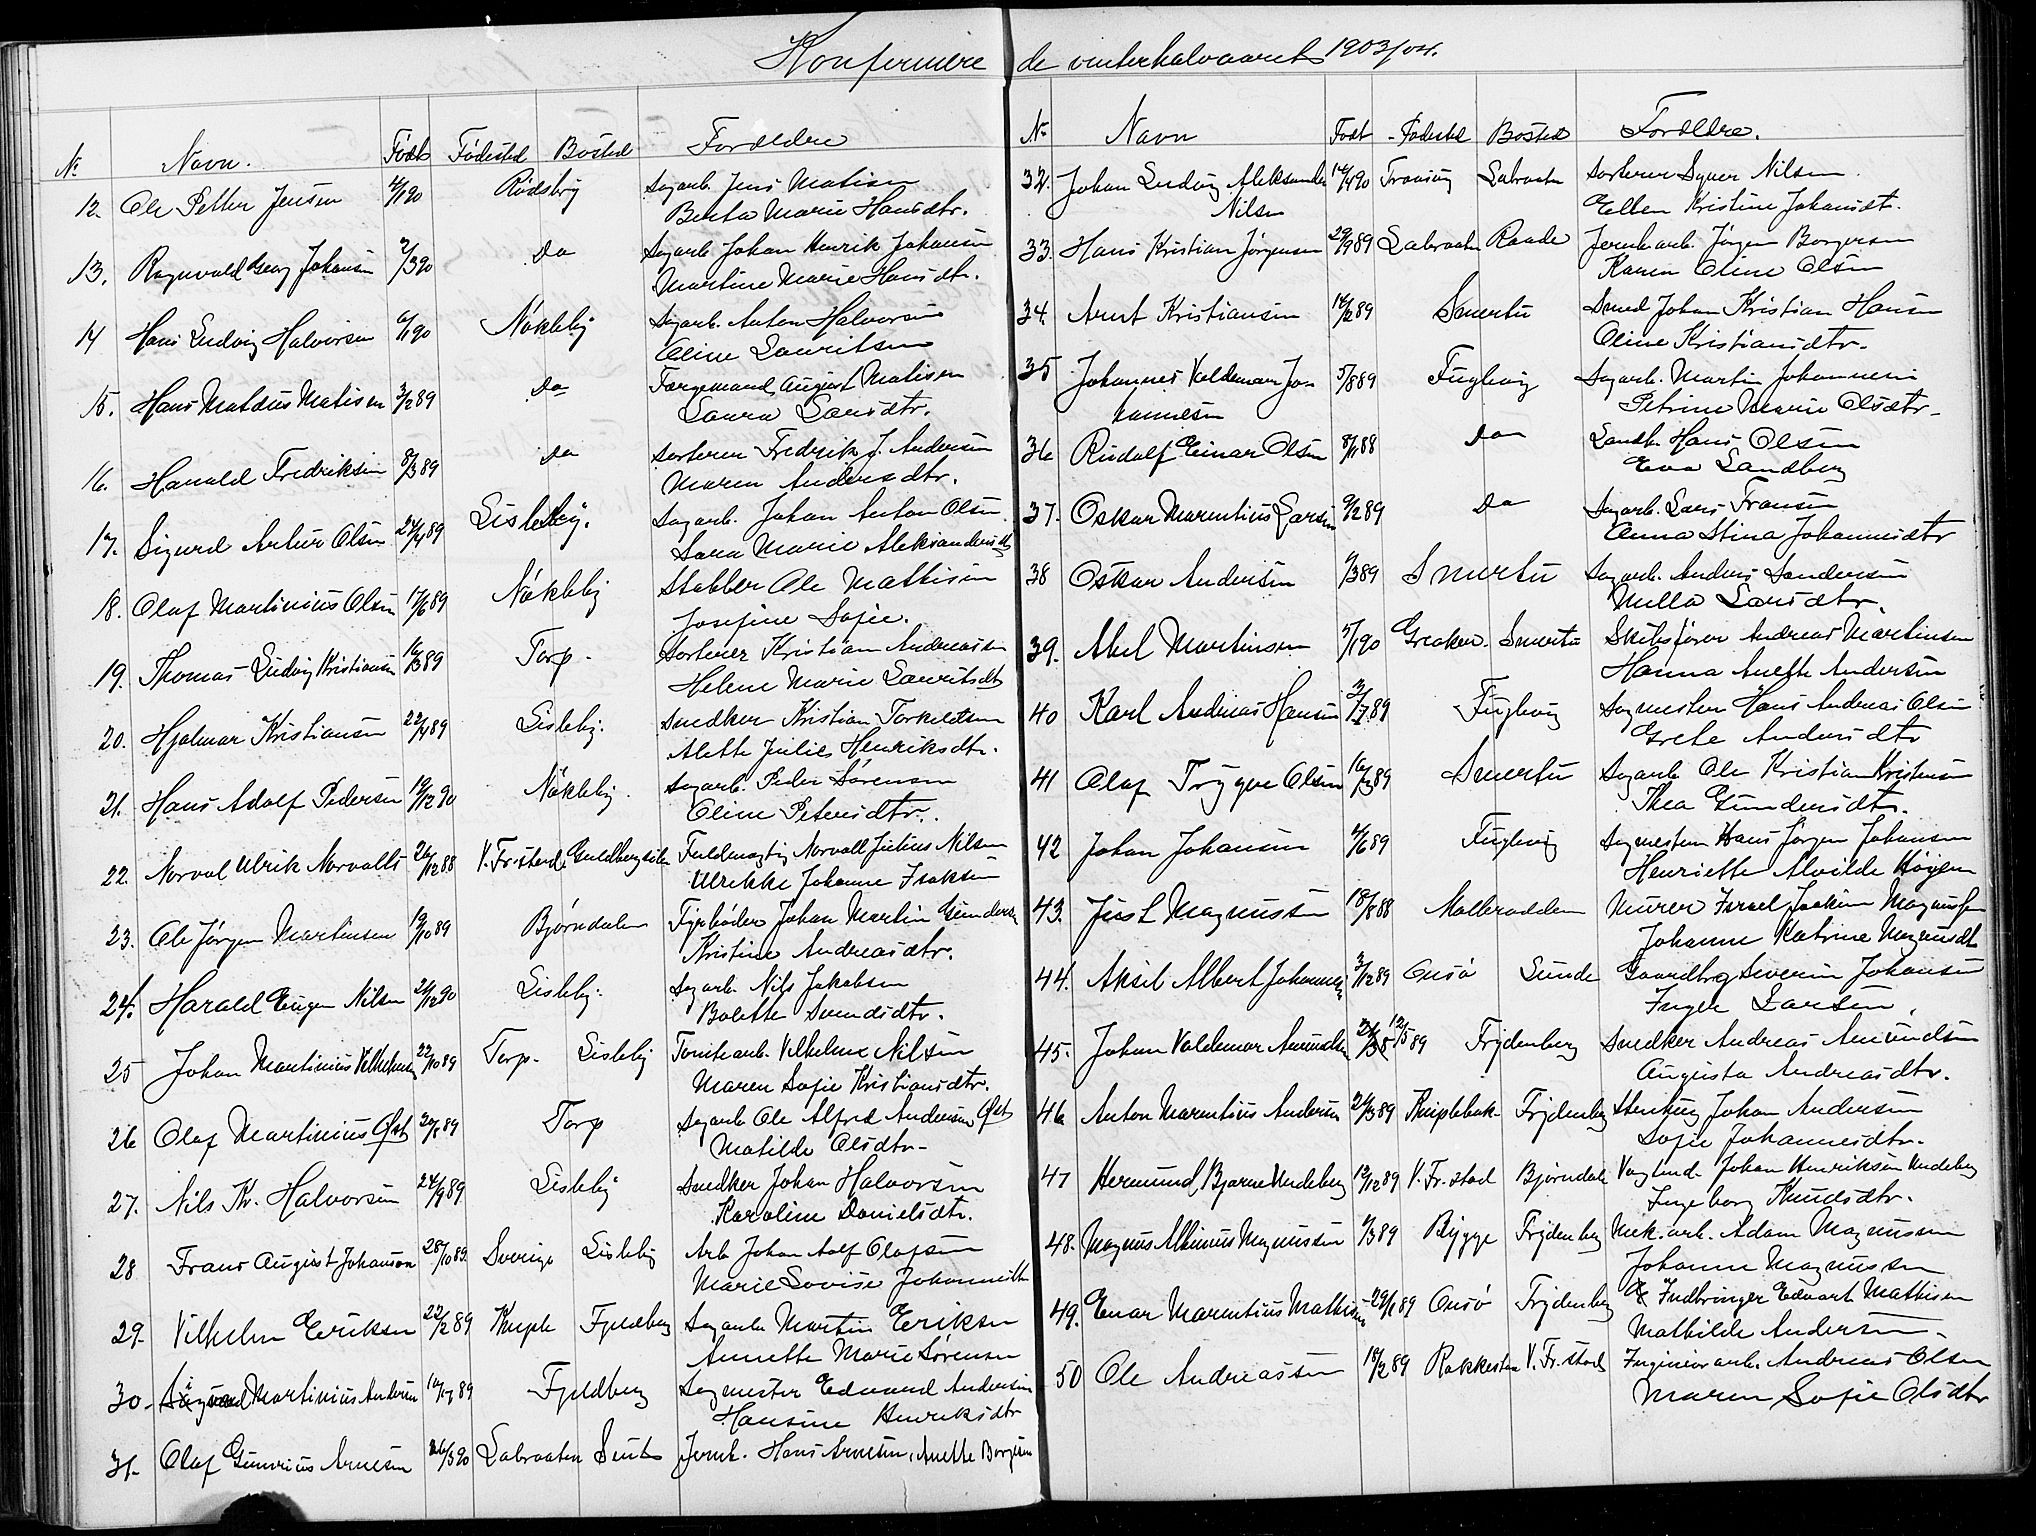 Konfermere de vinterhalvaaret 1903/04.
No Navn. Født Fødested Bosted Forældre
12. Ole Petter Jensen 4/1 90 Rødsby Sagarb. Jens Matisen
Berta Marie Hansdtr.
13. Ragnvald Georg Johansen 2/3 90 Do Sagarb. Johan Henrik Johansen
Martine Marie Hansdtr.
14 Hans Ludvig Halvorsen 6/1 90 Nøkleby Sagarb. Anton Halvorsen
Oline Lauritsen
15. Hans Matæus Matisen 3/2 89 Do Færgemand August Matisen
Laura Larsdtr.
16. Harald Fredriksen 8/3 89 Do Sorterer Fredrik J. Andersen
Maren Andersdtr.
17. Sigurd Artur Olsen 24/4 89 Lisleby. Sagarb. Johan Anton Olsen
Sara Marie Aleksandersdtr
18. Olaf Martinius Olsen 17/6 89 Nøkleby Stabber Ole Mathisen
Josefine Sofie.
19. Thomas Ludvig Kristiansen 16/3 89 Torp. Sorterer Kristian Andreassen
Helene Marie Lauritsdtr
20. Hjalmar Kristiansen 22/4 89 Lisleby. Snedker Kristian Torkildsen
Alette Julie Henriksdtr.
21. Hans Adolf Pedersen 19/12 90 Nøkleby. Sagarb. Peder Sørensen
Oline Petersdtr.
22. Norval Ulrik Norvalls 26/12 88 V. Fr.stad. Guldbergsiden Fuldmægtig Norvall Julius Nilsen
Ulrikke Johanne Isaksen
23. Ole Jørgen Martinsen 19/10 89 Bjørndalen Fyrbøder Johan Martin Gundersen
Kristine Andreasdtr.
24. Harald Eugen Nilsen 24/12 90 Lisleby. Sagarb. Nils Jakobsen
Bolette Svendsdtr.
25 Johan Martinius Vilhelmsen 22/10 89 Torp. Lisleby Tomtearb. Vilhelm Nilsen
Maren Sofie Kristiansdtr.
26 Olaf Martinius Øst 20/8 89 Torp Sagarb Ole Alfred Andersen Øst
Matilde Olsdtr.
27. Nils Kr. Halvorsen 24/9 89 Lisleby Snedker Johan Halvorsen
Karoline Danielsdtr.
28 Frans August Johanson 28/10 89. Sverige Lisleby Arb Johan Adolf Olafsen
Marie Lovise Johannesdtr
29. Vilhelm Eriksen 22/2 89 Kniple Fjeldberg Sagarb. Martin Eriksen
Annette Marie Sørensen
30. Sigvard Martinius Andersen 10/7 89 Fjeldberg Sagmester Edvard Andersen
Hansine Henriksdtr
31. Olaf Gunerius Arnesen 26/3 90 Labraaten Jernb. Hans Arnesen, Anette Borgersen
No Navn Født Fødested Bosted Forældre.
32. Johan Ludvig Aleksander 14/4 90 Trosvig Labraaten Sorterer Syver Nilsen
Nilsen Ellen Kristine Johansdtr.
33. Hans Kristian Jørgensen 29/9 89 Labraaten Raade Jernb.arb. Jørgen Borgersen
Karen Oline Olsen
34. Arnt Kristiansen 14/2 89 Smertu Smed Johan Kristian Hansen
Oline Kristiansdtr.
35 Johannes Valdemar Jo- 5/8 89 Fuglevig Sagarb. Martin Johannesen
hannesen Petrine Marie Olsdtr.
36 Rudolf Einar Olsen 8/11 88 Do Landh. Hans Olsen
Eva Sandberg
37. Oskar Marentius Larsen 9/2 89 Do Sagarb. Lars Fransen
Anna Stina Johannesdtr
38 Oskar Andersen 9/3 89 Smertu Sagarb. Anders Sandersen
Milla Larsdtr.
39. Abel Martinsen 5/1 90 Greaker. Smertu Skibsfører Andreas Martinsen
Hanna Anette Andersen
40 Karl Andreas Hansen 3/7 89 Fuglevig Sagmester Hans Andreas Olsen
Grete Andersdtr
41 Olaf Trygve Olsen 16/3 89 Smertu Sagarb Ole Kristian Kristensen
Thea Gundersdtr.
42 Johan Johansen 4/6 89 Fuglevig Sagmester Hans Jørgen Johansen
Henriette Alvilde Høyen
43. Just Magnussen 18/8 88 Malbrodden Murer Israel Joakim Magnussen
Johanne Katrine Magnusdtr
44. Aksel Albert Johannsen 3/12 89 Onsø Sunde Gaardbrg Severin Johansen
Inger Larsen,
45. Johan Valdemar Amundsen 12/5 89 Frydenberg Snedker Andreas Amundsen
Augusta Andreasdtr.
46 Anton Marentius Andersen 24/3 89 Kniplebak Frydenberg Stenhug Johan Andersen
Sofie Johannesdtr.
47 Hermund Bjarne Undeberg 12/12 89 V. Fr.stad Bjørndalen Johan Henriksen Undeberg
Ingeborg Knudsdtr.
48. Magnus Albinius Magnussen 9/3 89 Bygge Frydenberg Mek. arb. Adam Magnussen
Johanne Magnussen
49. Einar Marentius Mathisen 29/1 89 Onsø Frydenberg Indbringer Edvart Mathisen
Mathilde Andersen.
50 Ole Andreassen 18/2 89 Rakkestad V. Fr.stad Ingeniørarb. Andreas Olsen
Maren Sofie Olsdtr